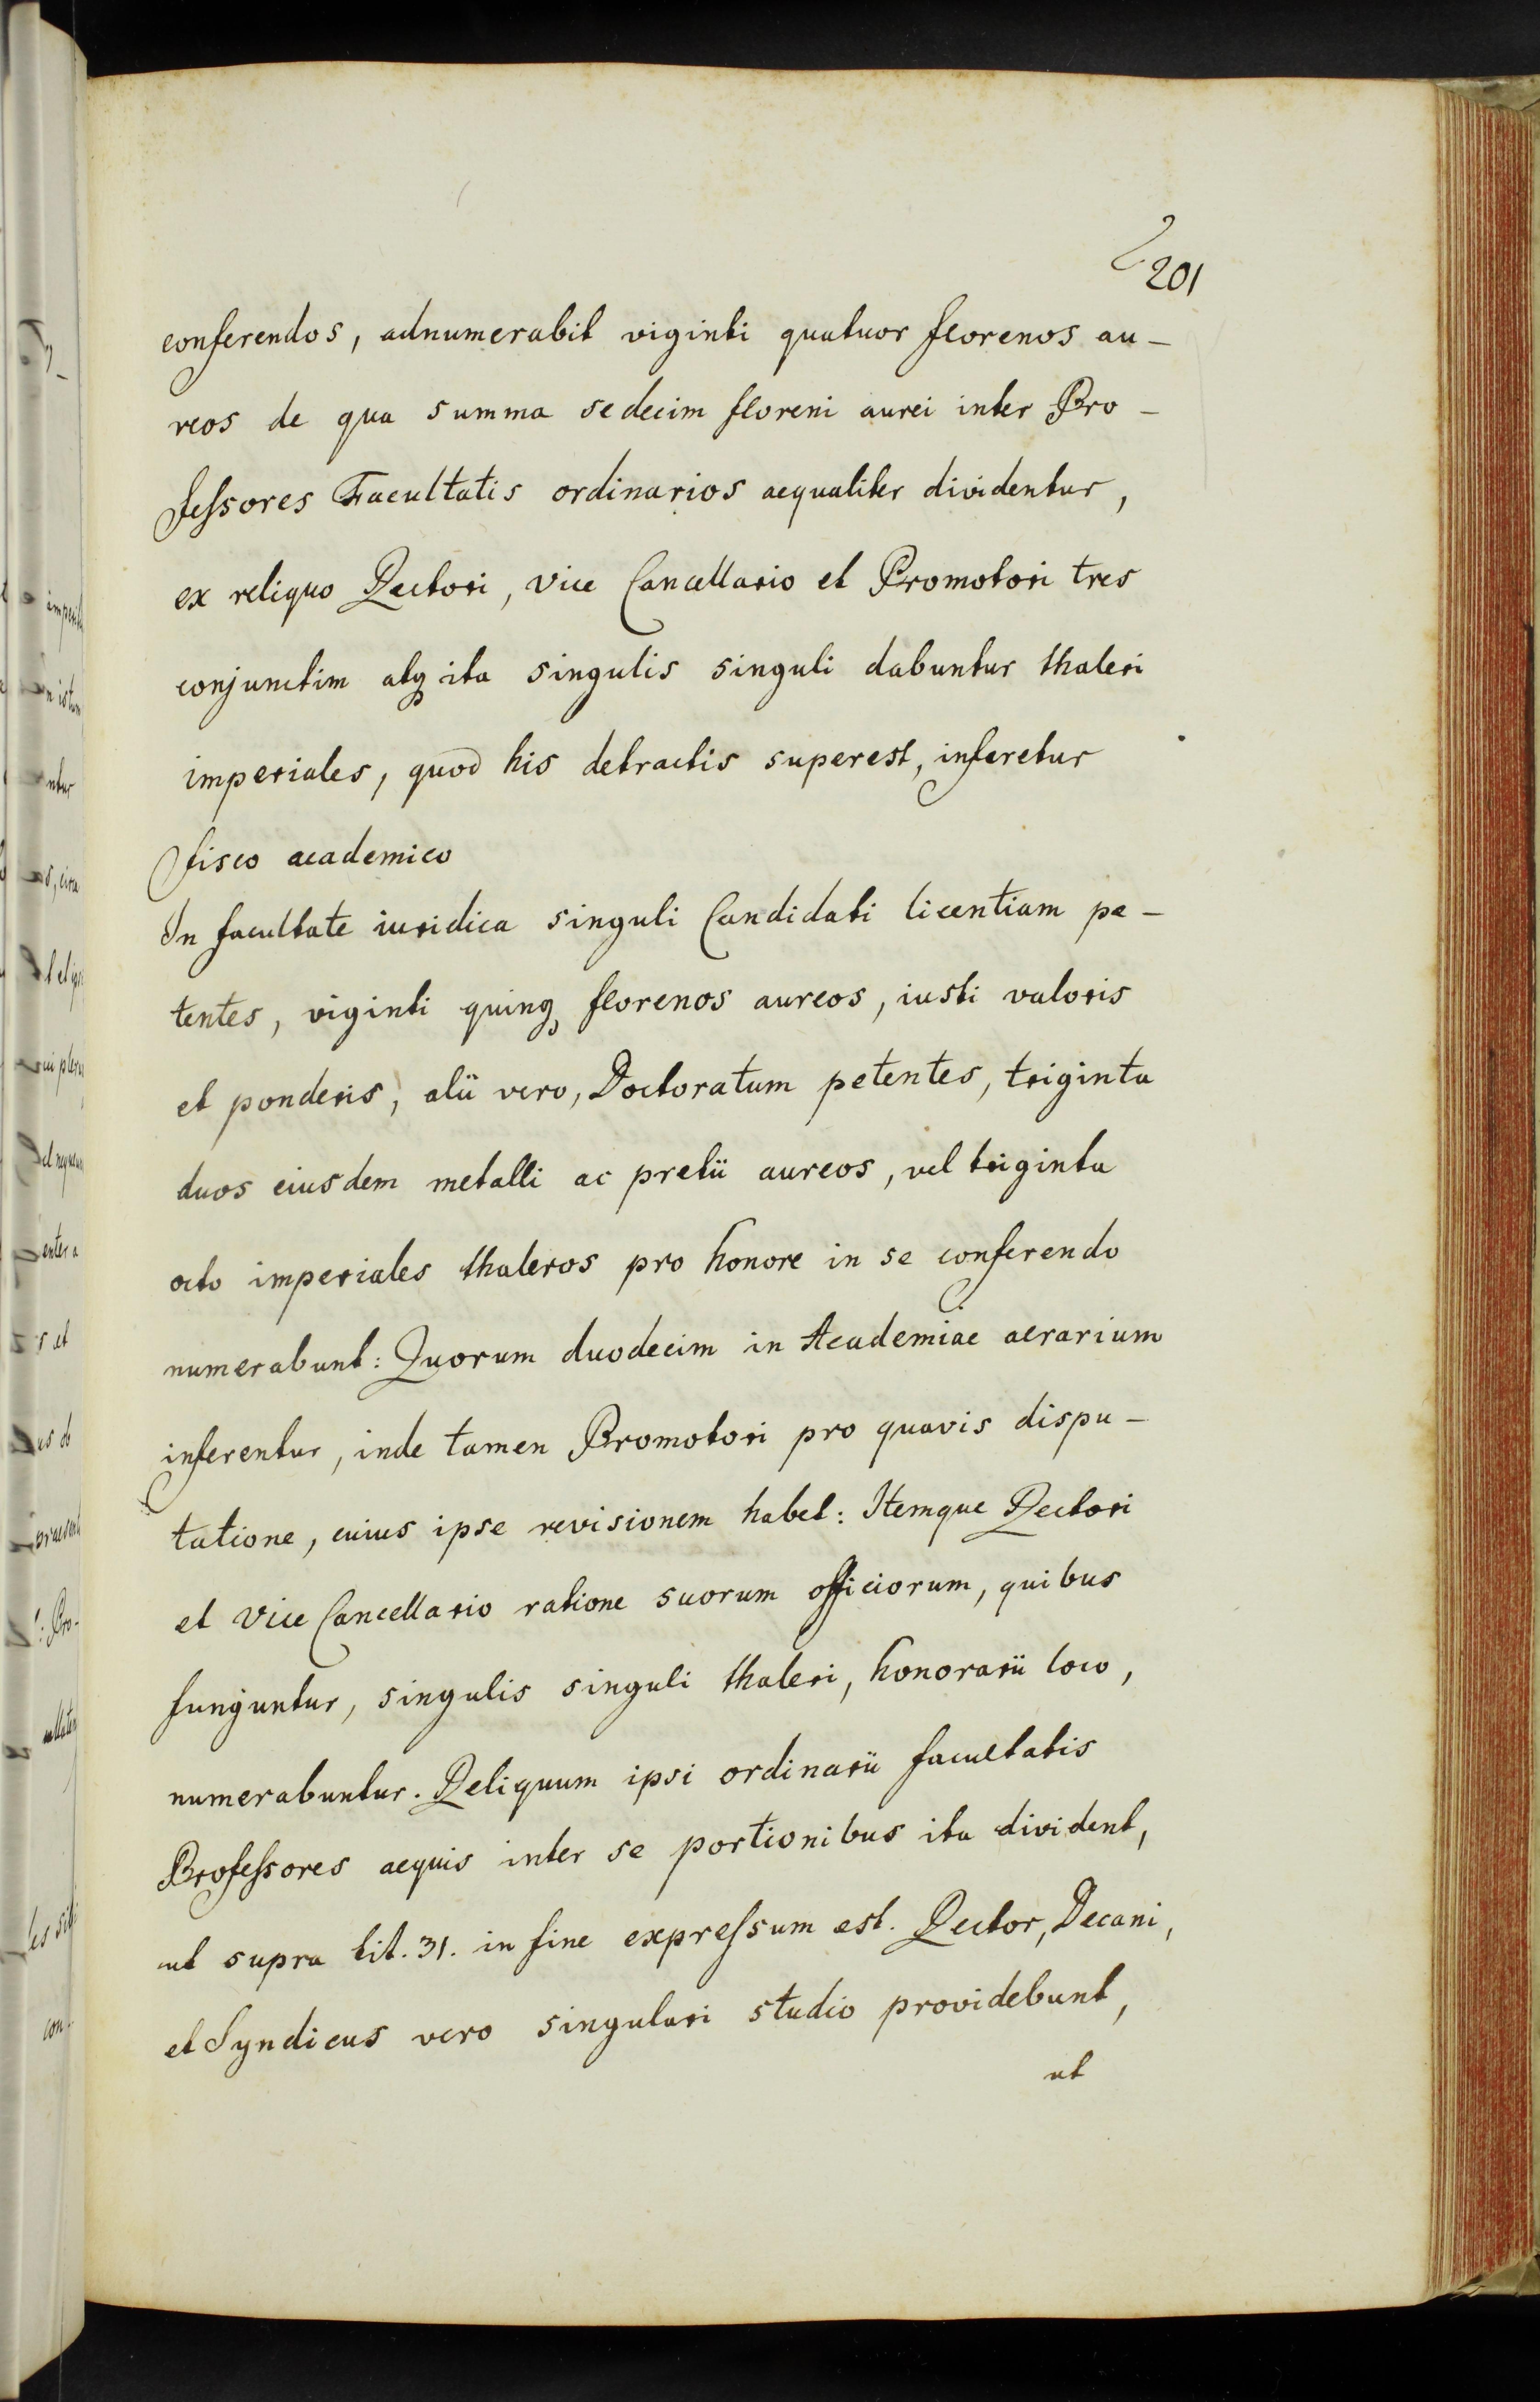 201
conferendos, adnumerabit viginti quatuor florenos au-
reos de qua summa sedecim floreni aurei inter Pro-
feſsores Facultatis ordinarios aequaliter dividentur,
ex reliquo Rectori, Vice Cancellario et Promotori tres
conjunctim atq ita singulis singuli dabuntur thaleri
imperiales, quod his detractis superest, inferetur
fisco academico
In facultate iuridica singuli Candidati licentiam pe-
tentes, viginti quinq florenos aureos, iusti valoris
et ponderis, alii vero, Doctoratum petentes, triginta
duos eiusdem metalli ac pretii aureos, vel triginta
octo imperiales thaleros pro honore in se conferendo
numerabunt: Quorum duodecim in Academiae aerarium
inferentur, inde tamen Promotori pro quavis dispu-
tatione, cuius ipse revisionem habet: Itemque Rectori
et Vice Cancellario ratione suorum officiorum, quibus
funguntur, singulis singuli thaleri, honorarii loco,
numerabuntur. Reliquum ipsi ordinarii facultatis
Profeſsores aequis inter se portionibus ita divident,
ut supra tit. 31. in fine expreſsum est. Rector, Decani,
et Syndicus vero singulari studio providebunt,
ut